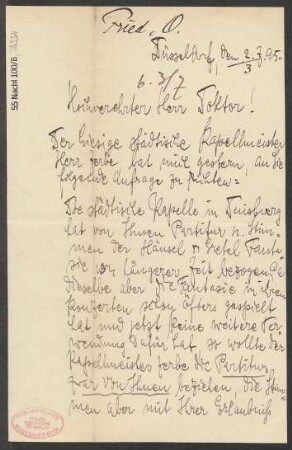 55 Nachl 100/B,
Fried, O.
Düsseldorf, den 2.7.95.
3
6. 3/7
Hochverehrter Herr Doktor!
Der hiesige städtische Kapellmeister
Herr Zerbe hat mich gestern, an Sie
folgende Anfrage zu richten:
Die städtische Kapelle in Duisburg
hat von Ihnen Partitur u. Stim-
men der Hänsel u Gretel Fanta-
sie vor längerer Zeit bezogen. Da
dieselbe aber die Fantasie in ihren
Konzerten schon öfters gespielt
hat und jetzt keine weitere Ver-
wendung dafür hat, so wollte der
Kapellmeister Zerbe die Partitur
zwar von Ihnen beziehen, die Stim-
men aber mit Ihrer Erlaubniss